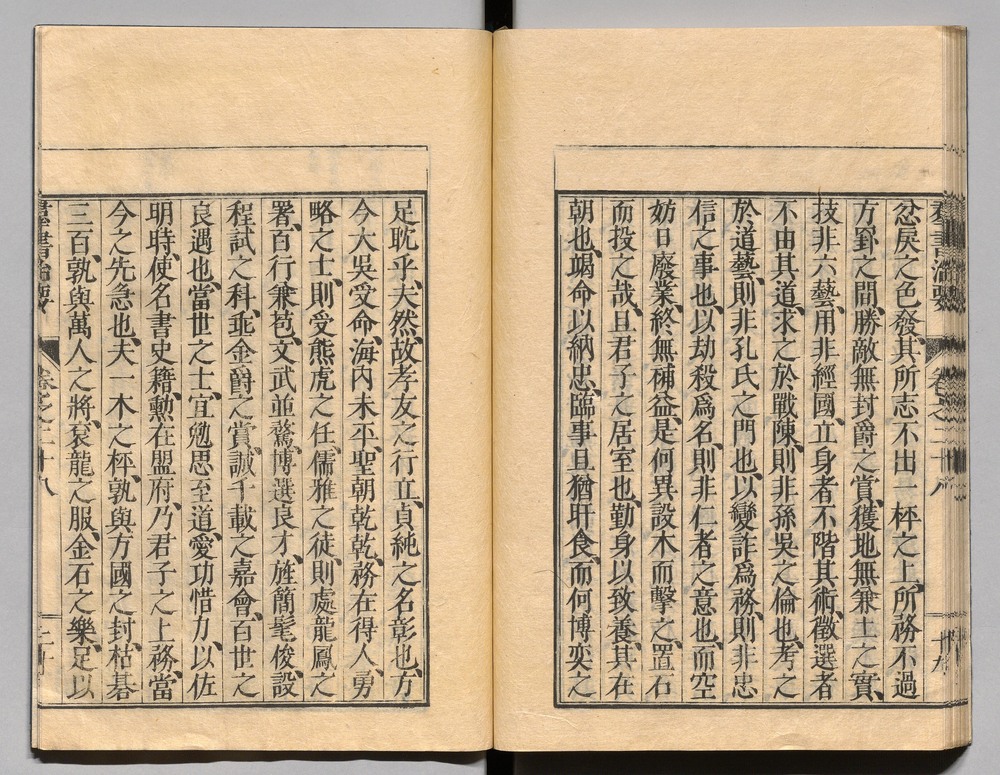 忿戾之色發、其所志不出一枰之上、所務不過
方罫之間、勝敵無封爵之賞、獲地無兼土之實、
技非六藝、用非經國、立身者不階其術、徵選者
不由其道、求之於戰陳、則非孫吳之倫也、考之
於道藝、則非孔氏之門也、以變詐爲務、則非忠
信之事也、以劫殺爲名、則非仁者之意也、而空
妨日廢業、終無補益、是何異設木而擊之、置石
而投之哉、且君子之居室也、勤身以致養、其在
朝也、竭命以納忠、臨事且猶旰食、而何博奕之
足耽乎、夫然、故孝友之行立、貞純之名彰也、方
今大吳受命、海內未平、聖朝乾乾、務在得人、勇
略之士、則受熊虎之任、儒雅之徒、則處龍鳳之
署、百行兼苞、文武並騖、博選良才、旌簡髦俊、設
程試之科、垂金爵之賞、誠千載之嘉會、百世之
良遇也、當世之士、宜勉思至道、愛功惜力、以佐
明時、使名書史籍、勳在盟府、乃君子之上務、當
今之先急也、夫一木之枰、孰與方國之封、枯棊
三百、孰與萬人之將、袞龍之服、金石之樂、足以
群書治要 卷之二十八 二十